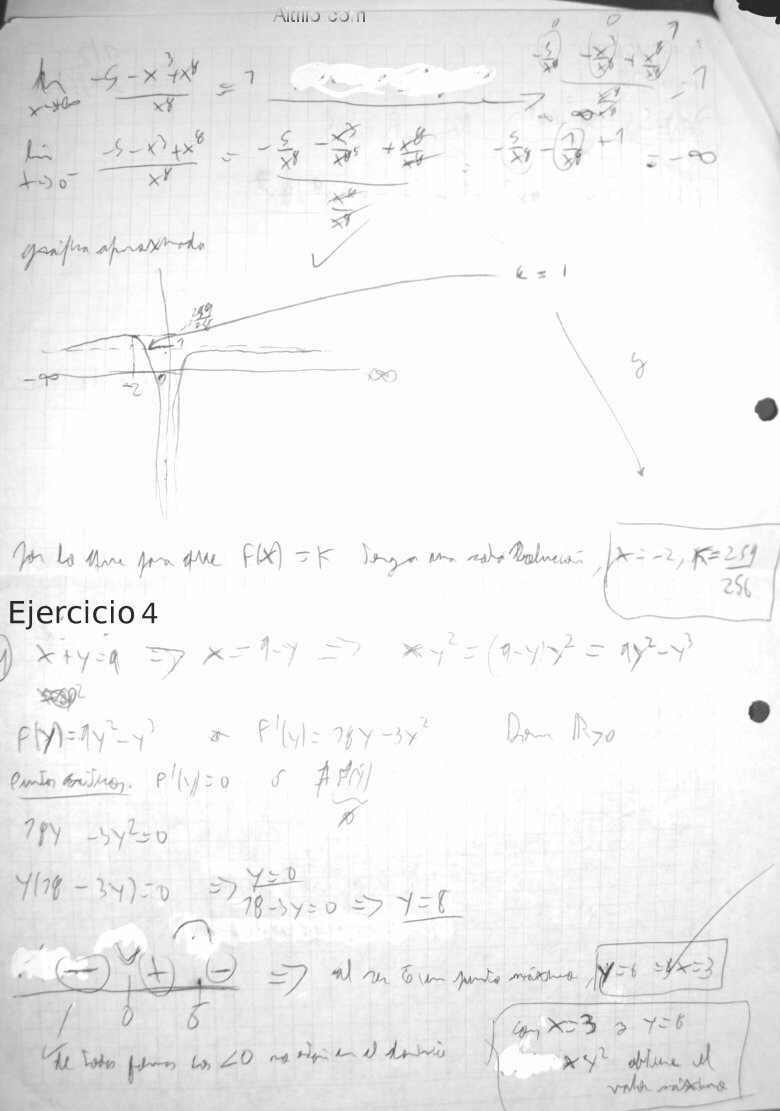 Altillo.com
lim x→∞ -5 - x³ + x⁸ / x⁸ = 1
-5/x⁸ - x³/x⁸ + x⁸/x⁸ / x⁸/x⁸ = 1
lim x→0⁻ -5 - x³ + x⁸ / x⁸ = -5/x⁸ - x³/x⁸⁵ + x⁸/x⁸ / x⁸/x⁸ = -5/x⁸ - 1/x⁵ + 1 = -∞
gráfica aproximada
k = 1
1
-∞ -2 0 ∞
y
Por lo que para que F(x) = K tenga una sola solución, x = -2, K = 259/256
Ejercicio 4
x + y = 9 => x = 9 - y => x·y² = (9-y)y² = 9y² - y³
F(y) = 9y² - y³ F'(y) = 18y - 3y² Dom R>0
Puntos críticos. F'(y) = 0 ó ∄ F'(y)
∅
18y - 3y² = 0
y(18 - 3y) = 0 => y = 0
18 - 3y = 0 => y = 6
- + - => al ser 6 un punto máximo, y = 6 => x = 3
0 6
con x = 3 y y = 6
de todas formas los <0 no están en el dominio
xy² obtiene el
valor máximo